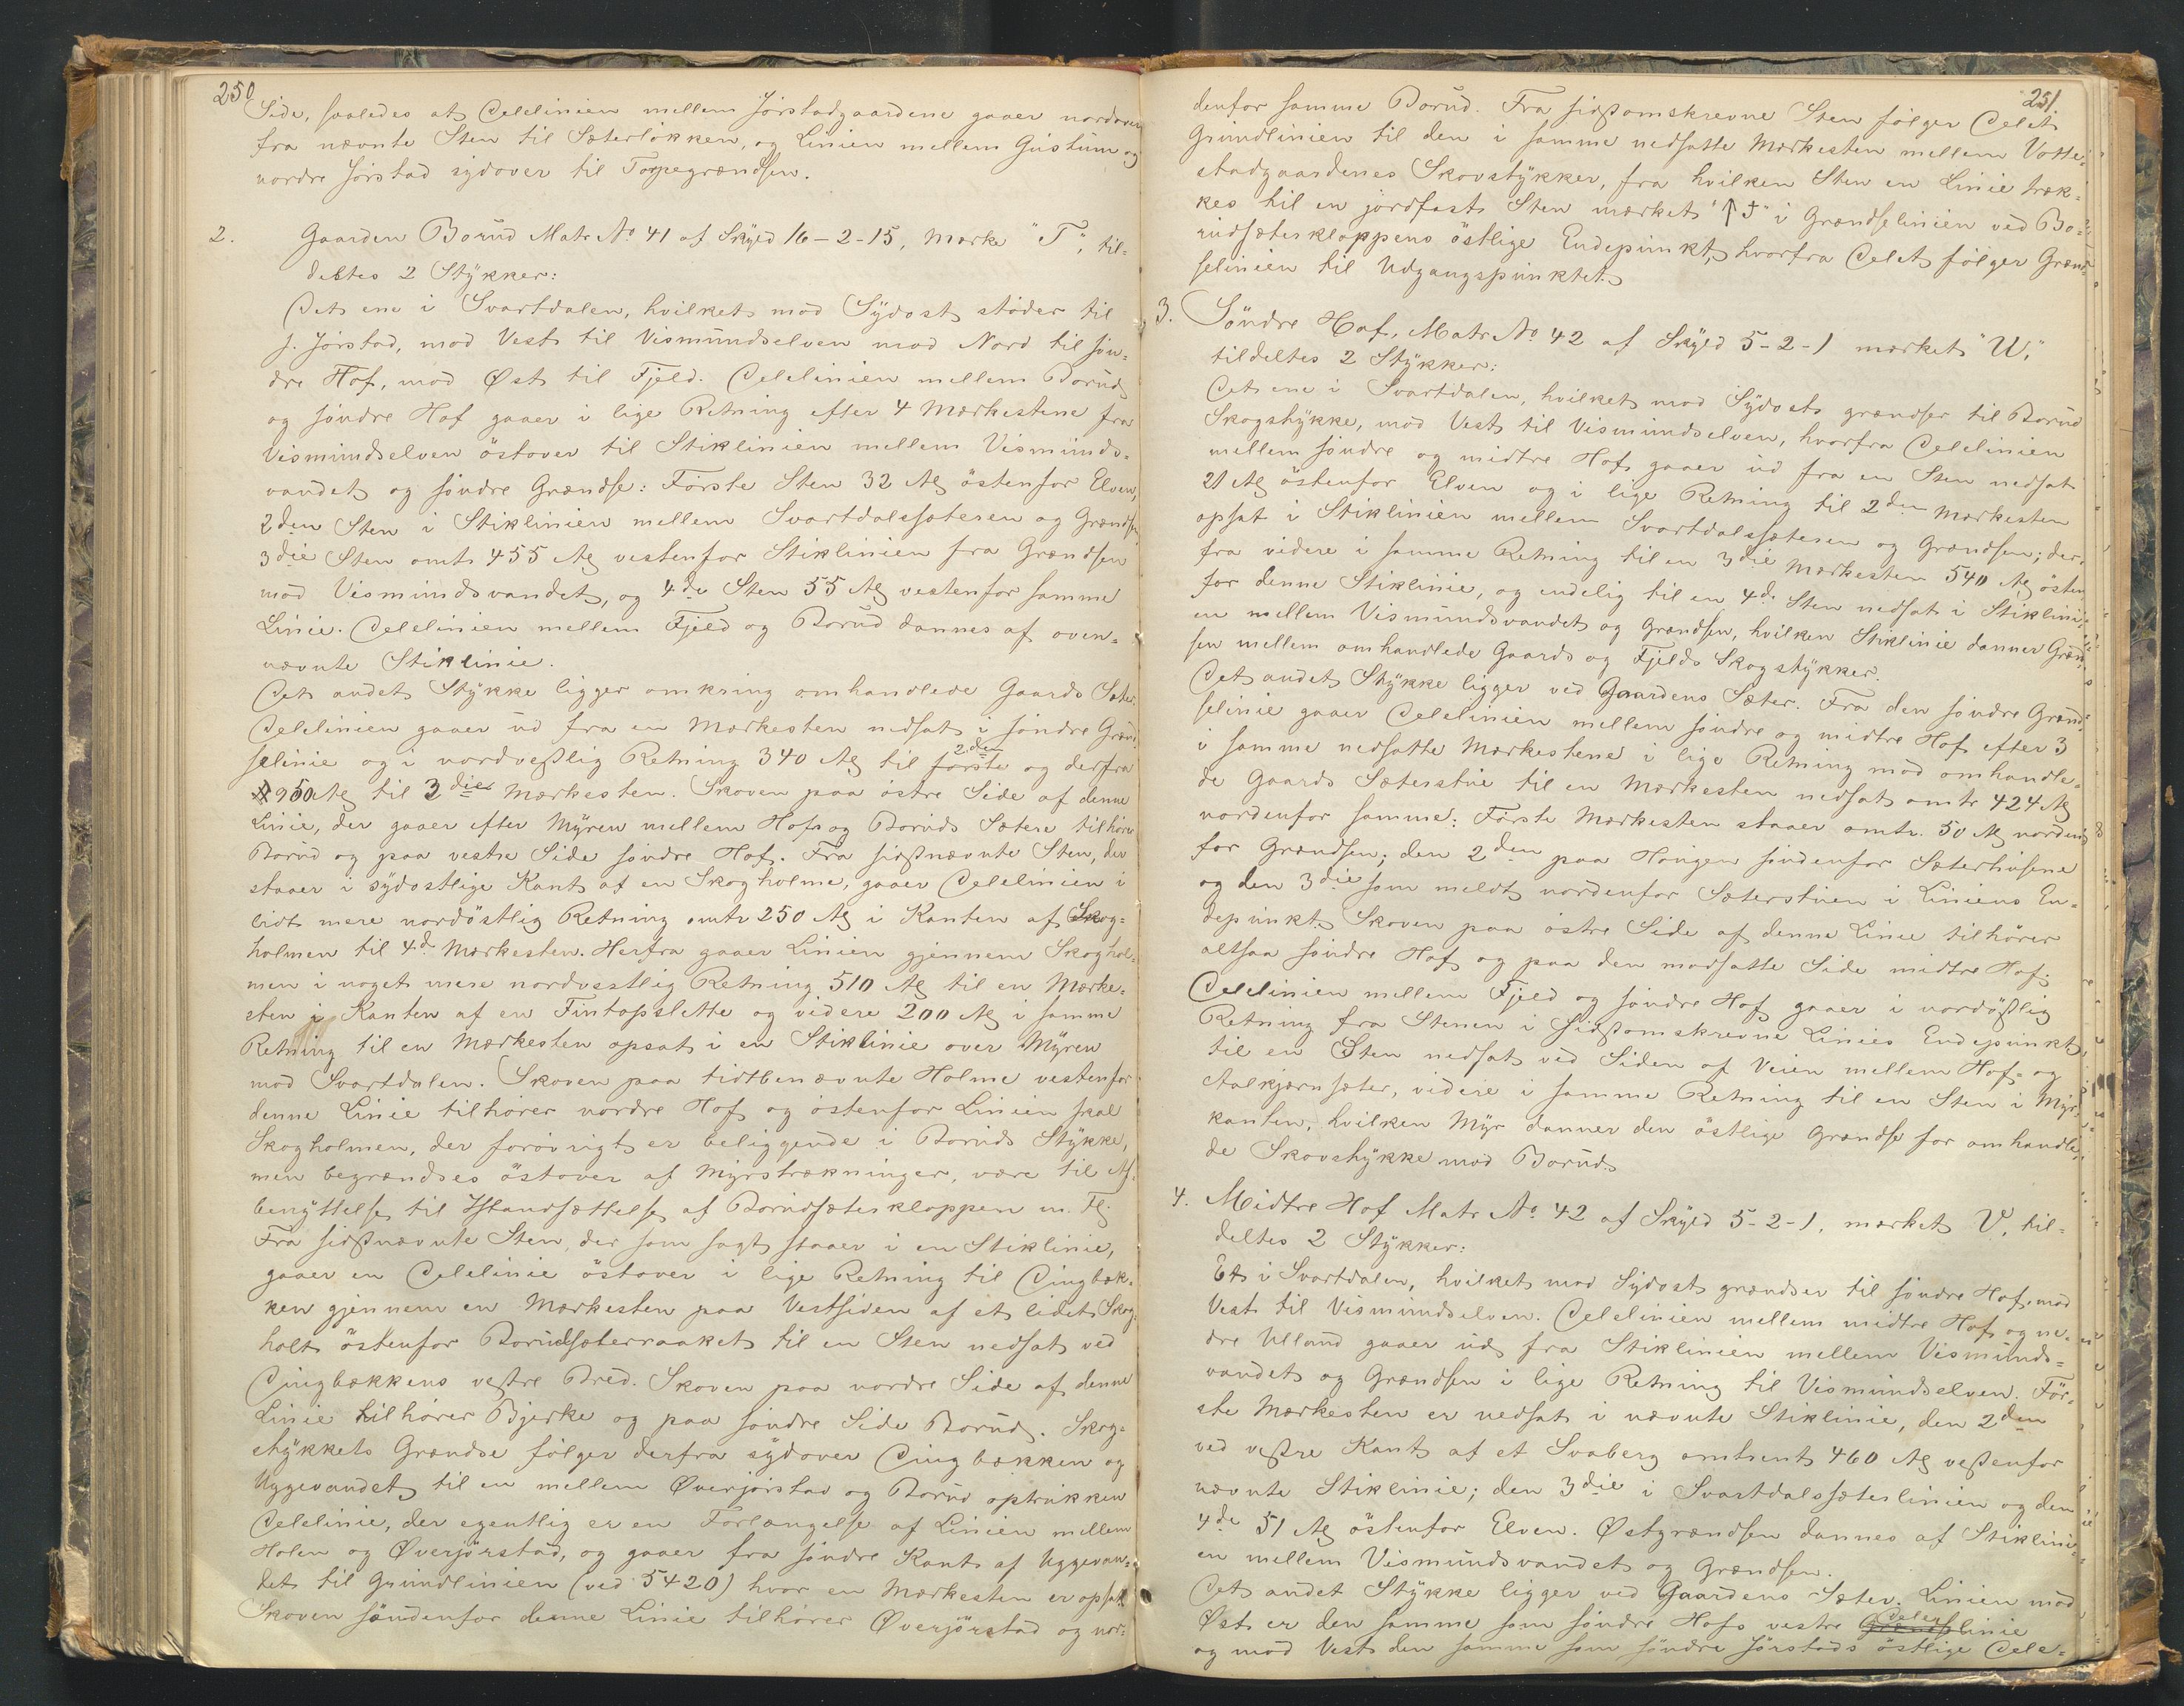 250
Side, saaledes at Delelinien mellem Jörstadgaardene gaaer nordover
fra nævnte Sten til Sæterlökken, og Linien mellem Gustum og
nordre Jörstad sydover til Torpegrændsen.
2. Gaarden Borud Matr No 41 af Skyld 16-2-15, Mærke "T", til-
deltes 2 Stykker:
Det ene i Svartdalen, hvilket mod Sydost stöder til
s. Jörstad, mod Vest til Vismundselven mod Nord til sön-
dre Hof, mod Øst til Fjeld. Delelinien mellem Borud
og söndre Hof gaaer i lige Retning efter 4 Mærkestene fra
Vismundselven östover til Stiklinien mellem Vismunds-
vandet og söndre Grændse: Förste Sten 32 Al östenfor Elven,
2den Sten i Stiklinien mellem Svartdalssæteren og Grændsen
3die Sten omtr 455 Al vestenfor Stiklinien fra Grændsen
mod Vismundsvandet, og 4de Sten 55 Al vestenfor samme
Linie. Delelinien mellem Fjeld og Borud dannes af oven-
nævnte Stiklinie.
Det andet Stykke ligger omkring omhandlede Gaards Sæter.
Delelinien gaaer ud fra en Mærkesten nedsat i söndre Grænd-
selinie og i nordvestlig Retning 340 Al til förste 2den og derfra
950 Al til 3die Mærkesten. Skoven paa östre Side af denne
Linie, der gaaer efter Myren mellem Hofs og Boruds Sætere tilhörer
Borud og paa vestre Side söndre Hof. Fra sidstnævnte Sten, der
staaer i sydostlige Kant af en Skogholme, gaaer Delelinien i
lidt mere nordöstlig Retning omtr 250 Al i Kanten af Skog-
holmen til 4de Mærkesten. Herfra gaaer Linien gjennem Skoghol-
men i noget mere nordvestlig Retning 510 Al til en Mærke-
sten i Kanten af en Fintopslette og videre 200 Al i samme
Retning til en Mærkesten opsat i en Stiklinie over Myren
mod Svartdalen. Skoven paa tidtbenævnte Holme vestenfor
denne Linie tilhörer nordre Hof og östenfor Linien skal
Skogholmen, der forövrigt er beliggende i Boruds Stykke,
men begrændses östover af Myrstrækninger, være til Af-
benyttelse til Istandsættelse af Borudsæterkloppen m. Fl.
Fra sidstnævnte Sten, der som sagt staaer i en Stiklinie,
gaaer en Delelinie östover i lige Retning til Dingbæk-
ken gjennem en Mærkesten paa Vestsiden af et lidet Skog-
holt östenfor Borudsæterraaket til en Sten nedsat ved
Dingbækkens vestre Bred. Skoven paa nordre Side af denne
Linie tilhörer Bjerke og paa söndre Side Borud. Skog-
stykkets Grændse fölger derfra sydover Dingbækken og
Uggevandet til en mellem Øverjörstad og Borud optrukken
Delelinie, der egentlig er en Forlængelse af Linien mellem
Holen og Øverjörstad, og gaaer fra söndre Kant af Uggevan-
det til Grundlinien (ved 5420) hvor en Mærkesten er opsat
Skoven söndenfor denne Linie tilhörer Øverjörstad og nor-
251.
denfor samme Borud. Fra sidstomskrevne Sten fölger Delet
Grundlinien til den i samme nedsatte Mærkesten mellem Votte-
stadgaardenes Skovstykker, fra hvilken Sten en Linie træk-
kes til en jordfast Sten mærket "↑ J" i Grændselinien ved Bo-
rudsæterkloppens östlige Endepunkt, hvorfra Delet fölger Grænd-
selinien til Udgangspunktet.
3. Söndre Hof, Matr No 42 af Skyld 5-2-1 mærket "U,"
tildeltes 2 Stykker:
Det ene i Svartdalen, hvilket mod Sydost grændser til Borud
Skogstykke, mod Vest til Vismundselven, hvorfra Delelinien
mellem söndre og midtre Hof gaaer ud fra en Sten nedsat
21 Al östenfor Elven og i lige Retning til 2den Mærkesten
opsat i Stiklinien mellem Svartdalssæteren og Grændsen; der-
fra videre i samme Retning til en 3die Mærkesten 540 Al östen
for denne Stiklinie, og endelig til en 4de Sten nedsat i Stiklini-
en mellem Vismundsvandet og Grændsen, hvilken Stiklinie danner Grænd-
sen mellem omhandlede Gaards og Fjelds Skogstykker.
Det andet Stykke ligger ved Gaardens Sæter. Fra den söndre Grænd-
selinie gaaer Delelinien mellem söndre og midtre Hof efter 3
i samme nedsatte Mærkestene i lige Retning mod omhandle-
de Gaards Sæterstue til en Mærkesten nedsat omtr 424 Al
nordenfor samme: Förste Mærkesten staaer omtr. 50 Al norden
for Grændsen; den 2den paa Haugen söndenfor Sæterhusene
og den 3die som meldt nordenfor Sæterstuen i Liniens En-
depunkt. Skoven paa östre Side af denne Linie tilhörer
altsaa söndre Hof og paa den modsatte Side midtre Hof.
Delelinien mellem Fjeld og söndre Hof gaaer i nordöstlig
Retning fra Stenen i sidstomskrevne Linies Endepunkt
til en Sten nedsat ved Siden af Veien mellem Hof- og
Aalkjærnsæter, videre i samme Retning til en Sten i Myr-
kanten, hvilken Myr danner den östlige Grændse for omhandle-
de Skovstykke mod Borud.
4. Midtre Hof Matr No 42 af Skyld 5-2-1, mærket V, til-
deltes 2 Stykker:
Et i Svartdalen, hvilket mod Sydost grændser til söndre Hof, mod
Vest til Vismundselven. Delelinien mellem midtre Hof og ne-
dre Ulland gaaer ud fra Stiklinien mellem Vismunds-
vandet og Grændsen i lige Retning til Vismundselven. För-
ste Mærkesten er nedsat i nævnte Stiklinie, den 2den
ved vestre Kant af et Svaberg omtrent 460 Al vestenfor
nævnte Stiklinie; den 3die i Svartdalssæterlinien og den
4de 51 Al östenfor Elven. Østgrændsen dannes af Stiklini-
en mellem Vismundsvandet og Grændsen.
Det andet Stykke ligger ved Gaardens Sæter. Linien mod
Øst er den samme som söndre Hofs vestre Delelinie
og mod Vest den samme som söndre Jörstads östlige Dele-